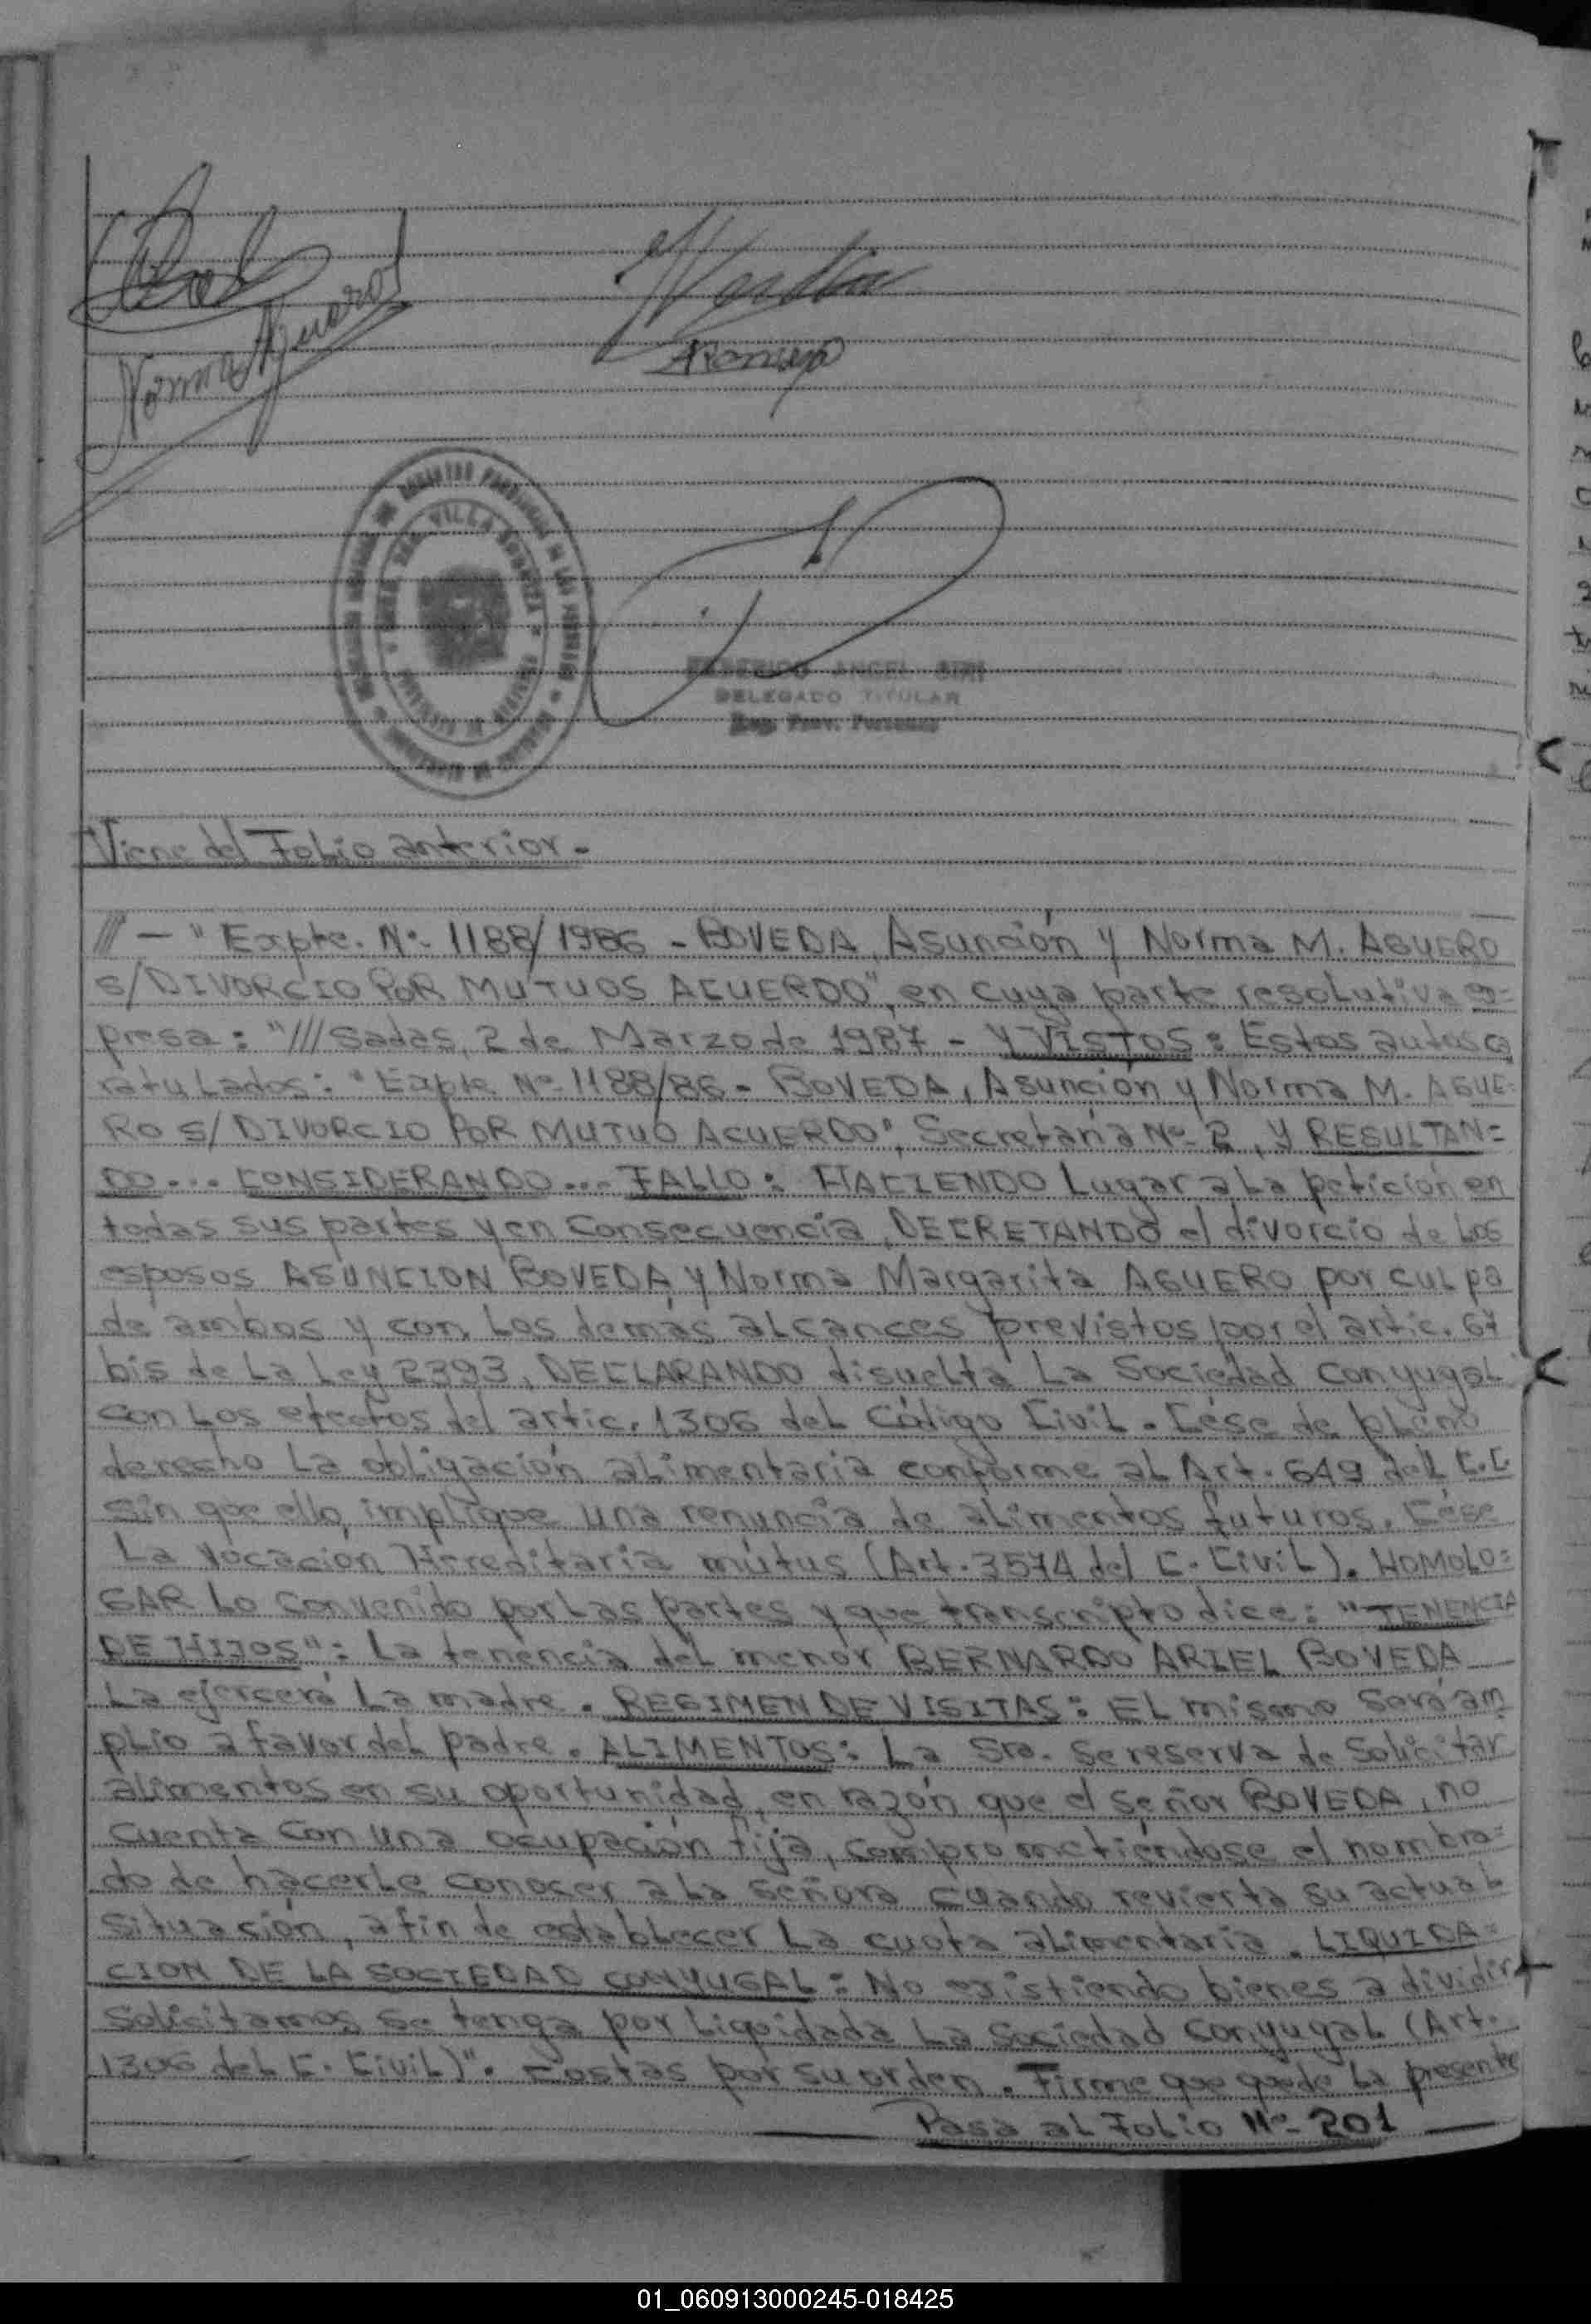 Norma Aguero
VILLA
ANGEL
DELEGADO TITULAR
Viene del Folio anterior.
/// - "Expte. Nº 1188/1986 - BOVEDA, Asunción y Norma M. AGUERO
S/ DIVORCIO POR MUTUOS ACUERDO", en cuya parte resolutiva
presa: "/// Sadas, 2 de Marzo de 1987 - Y VISTOS: Estos autos ca
ratulados: "Expte Nº 1188/86 - BOVEDA, Asunción y Norma M. AGUE=
RO S/ DIVORCIO POR MUTUO ACUERDO", Secretaría Nº 2, y RESULTAN=
DO... CONSIDERANDO... FALLO: HACIENDO Lugar a La petición en
todas sus partes y en Consecuencia, DECRETANDO el divorcio de Los
esposos ASUNCION BOVEDA y Norma Margarita AGUERO por culpa
de ambos y con Los demás alcances previstos por el artic. 67
bis de La Ley 2393, DECLARANDO disuelta La Sociedad Conyugal
con Los efectos del artic. 1306 del Código Civil. Cése de pleno
derecho La obligación alimentaria conforme al Art. 649 del C.C
sin que ello, implique una renuncia de alimentos futuros. Cése
La Vocación Hereditaria mútus (Art. 3574 del C. Civil). HOMOLO=
GAR Lo Convenido por Las partes y que transcripto dice: "TENENCIA
DE HIJOS": La tenencia del menor BERNARDO ARIEL BOVEDA
La ejercerá La madre. REGIMEN DE VISITAS: EL mismo Será am
plio a favor del padre. ALIMENTOS: La Sra. se reserva de Solicitar
alimentos en su oportunidad, en razón que el Señor BOVEDA, no
Cuenta Con una ocupación fija, comprometiéndose el nombra=
do de hacerle conocer a La Señora cuando revierta su actual
Situación, a fin de establecer La cuota alimentaria. LIQUIDA=
CION DE LA SOCIEDAD CONYUGAL: No existiendo bienes a dividir
Solicitamos se tenga por Liquidada La Sociedad conyugal (Art.
1306 del C. Civil)". Costas por su orden. Firme que quede La presente
Pasa al Folio Nº 201
01_060913000245-018425